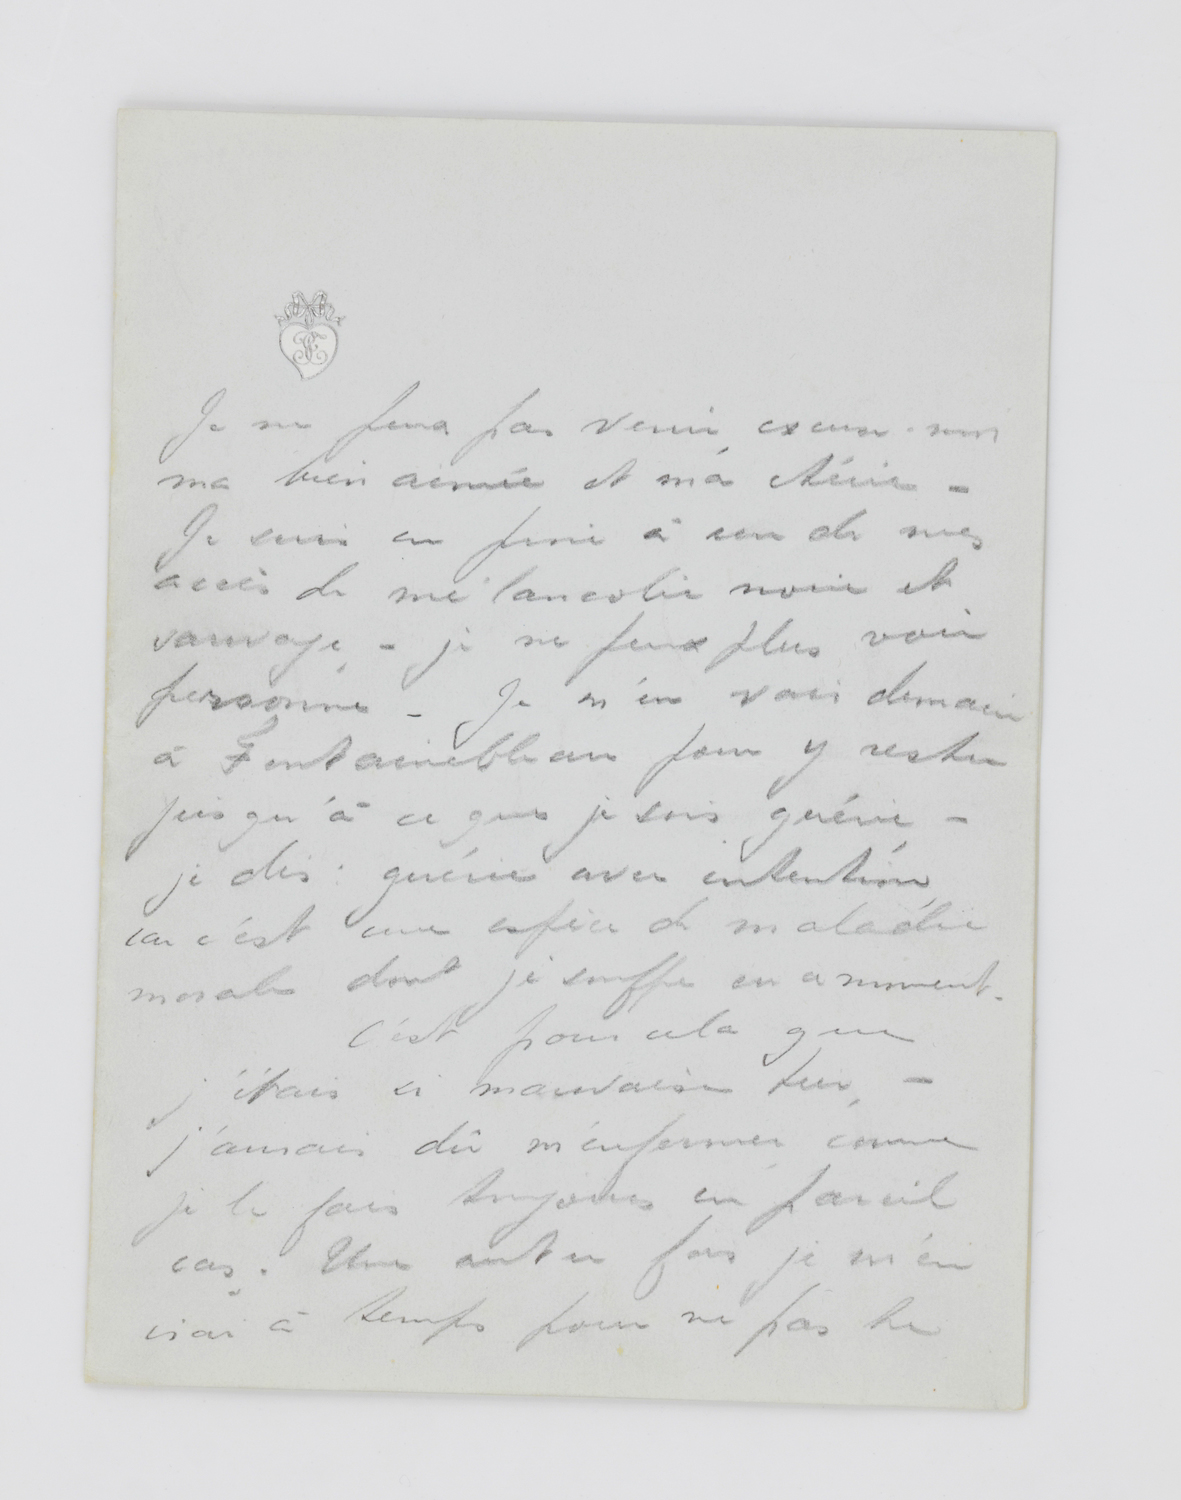 Je ne peux pas venir, excuse-moi
ma bien aimée et ma chérie -
Je suis en proie à un de mes
accès de mélancolie noire et
sauvage, - je ne peux plus voir
personne - Je m'en vais demain
à Fontainebleau pour y rester
jusqu'à ce que je sois guérie -
je dis : guérie avec intention
car c'est une espèce de maladie
morale dont je souffre en a moment.
C'est pour cela que
j'étais si mauvaise hier, -
j'aurais dû m'enfermer comme
je le fais toujours en pareil
cas. Une autre fois je m'en
irai à temps pour ne pas te